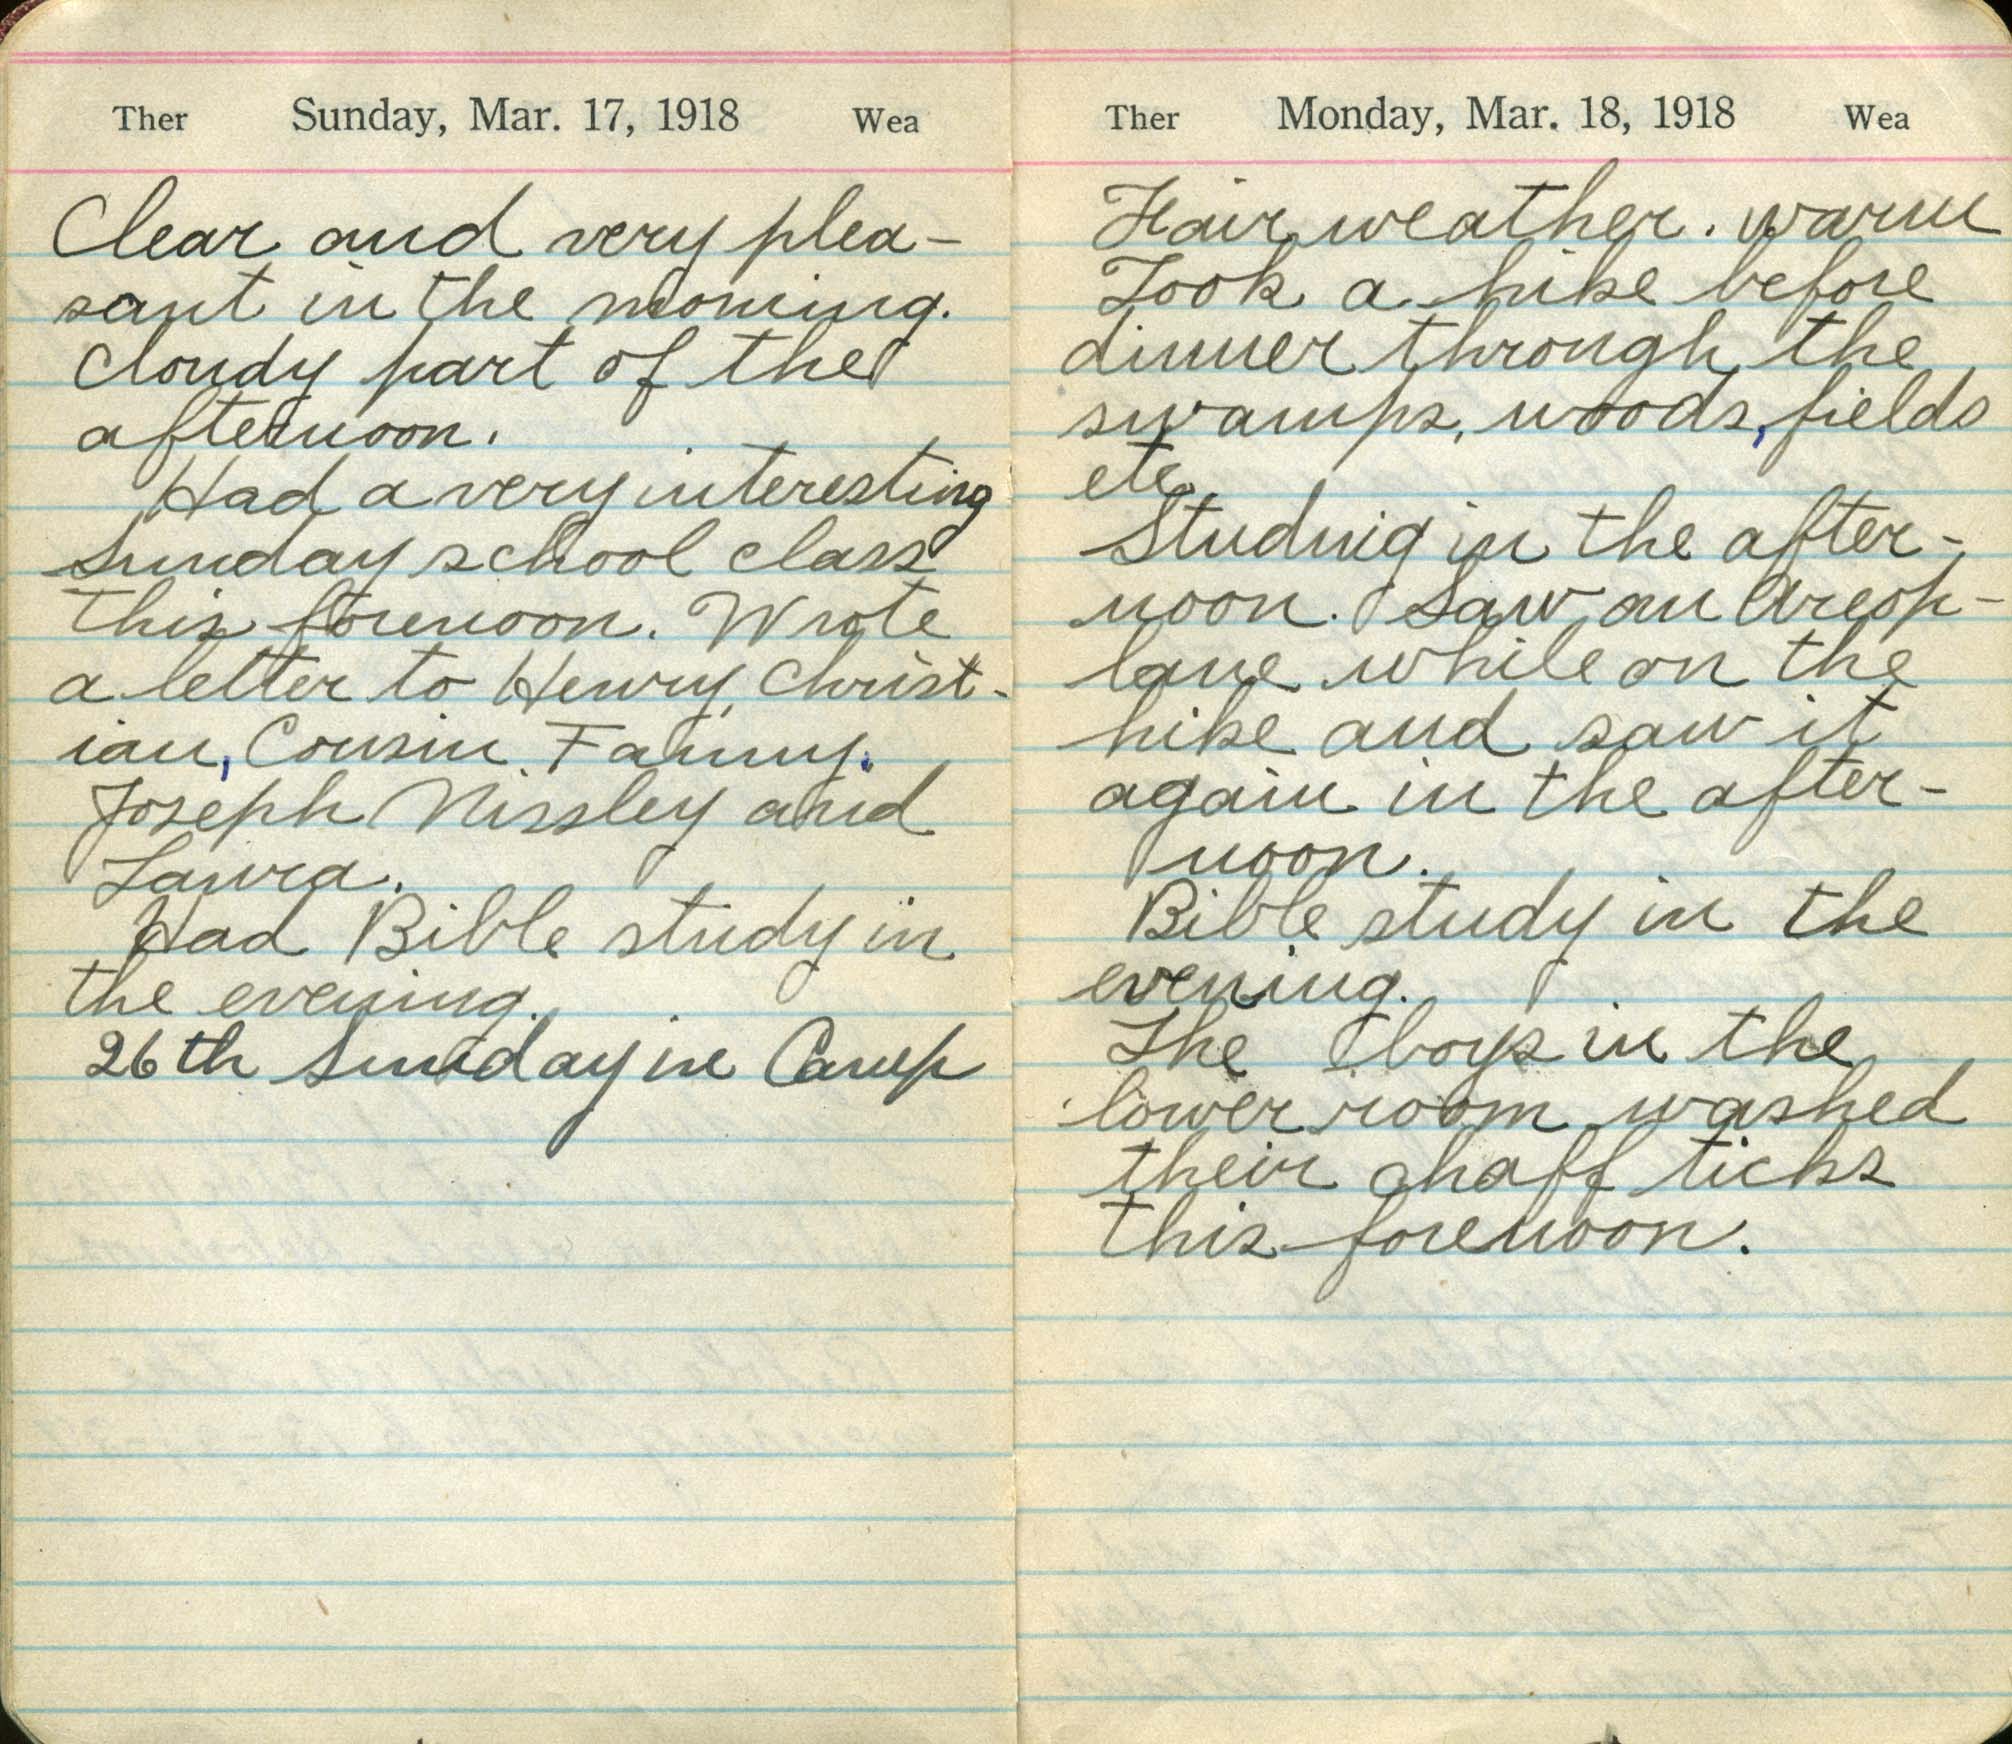 Ther Sunday, Mar. 17, 1918 Wea
Clear and very plea-
sant in the morning.
Cloudy part of the
afternoon.
Had a very interesting
Sunday school class
this forenoon. Wrote
a letter to Henry, Christ-
ian, Cousin Fanny,
Joseph Nissley and
Laura.
Had Bible study in
the evening.
26th Sunday in Camp
Ther Monday, Mar. 18, 1918 Wea
Fair weather. warm
Took a hike before
dinner through the
swamps, woods, fields
etc.
Studnig in the after-
noon. Saw an areop-
lane while on the
hike and saw it
again in the after-
noon.
Bible study in the
evening.
The boys in the
lower room washed
their chaff ticks
this forenoon.